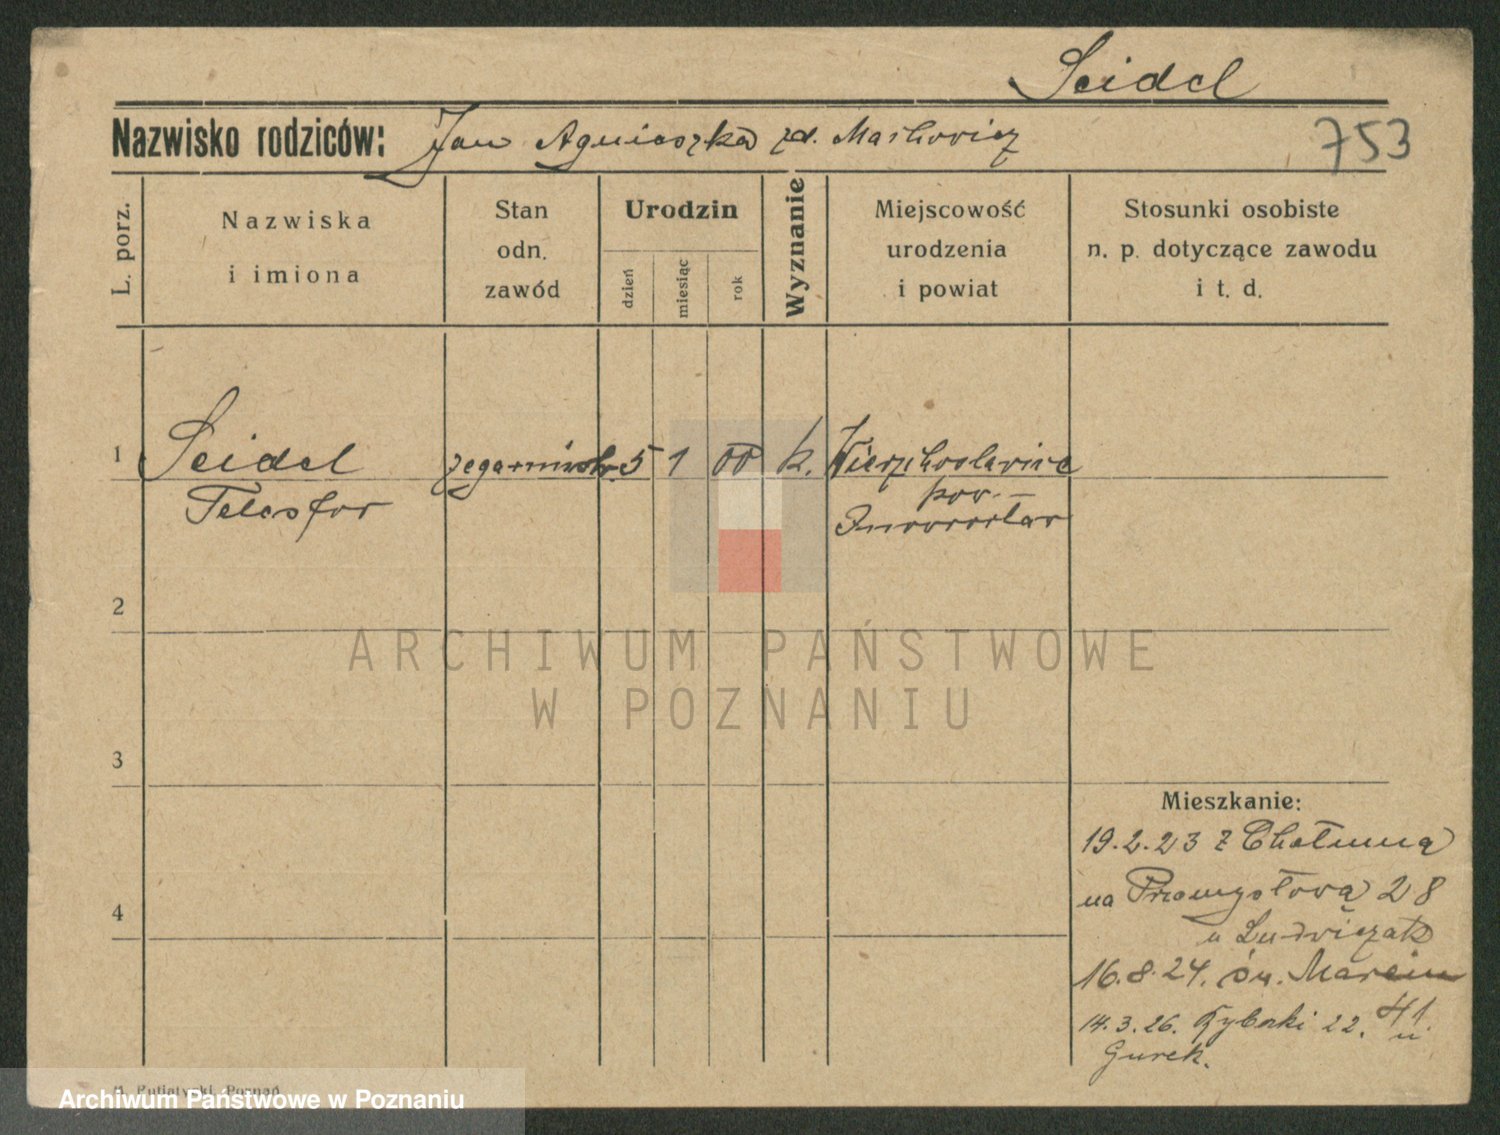 Seidel
Nazwisko rodziców: Jan Agnieszka zd. Markowicz
753
L. porz.
Nazwiska
i imiona
Stan
odn.
zawód
Urodzin
dzień
miesiąc
rok
Wyznanie
Miejscowość
urodzenia
i powiat
Stosunki osobiste
n. p. dotyczące zawodu
i t. d.
1 Seidel zegarmistrz 5 1 00 k. Wierzchosławice
Telesfor pow.
Inowrocław
2
ARCHIWUM PAŃSTWOWE
W POZNANIU
3
Mieszkanie:
19.2.23 z Chełmna
na Przemysłową 28
u Ludwiczak
4
16.8.24. św. Marcin
41
14.3.26. Rybaki 22. u
Gurek.
Putiatycki, Poznań
Archiwum Państwowe w Poznaniu